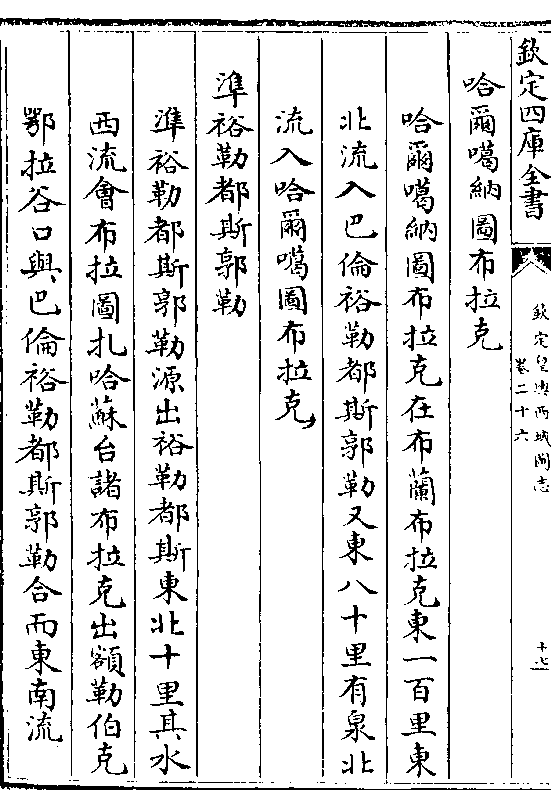 欽定四庫全書
欽定皇輿西域圖志
卷二十六
十七
哈爾噶納圖布拉克
哈爾噶納圖布拉克在布蘭布拉克東一百里東
北流入巴倫裕勒都斯郭勒又東八十里有泉北
流入哈爾噶圖布拉克
準裕勒都斯郭勒
準裕勒都斯郭勒源出裕勒都斯東北十里其水
西流會布拉圖扎哈蘇台諸布拉克出額勒伯克
鄂拉谷口與巴倫裕勒都斯郭勒合而東南流